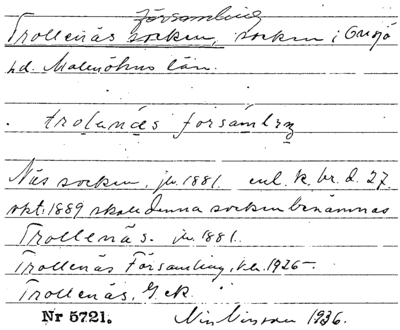 Församling
Trollenäs socken, socken i Onsjö
hd. Malmöhus län.
trolenäs forsamlıŋ
Näs socken, jb. 1881. enl. k. br. d. 27
okt. 1889 skall denna socken benämnas
Trollenäs. jb. 1881.
Trollenäs Församling, 1926-
Trollenäs, G.ek.
Nr 5721. Nils Nilsson 1936.